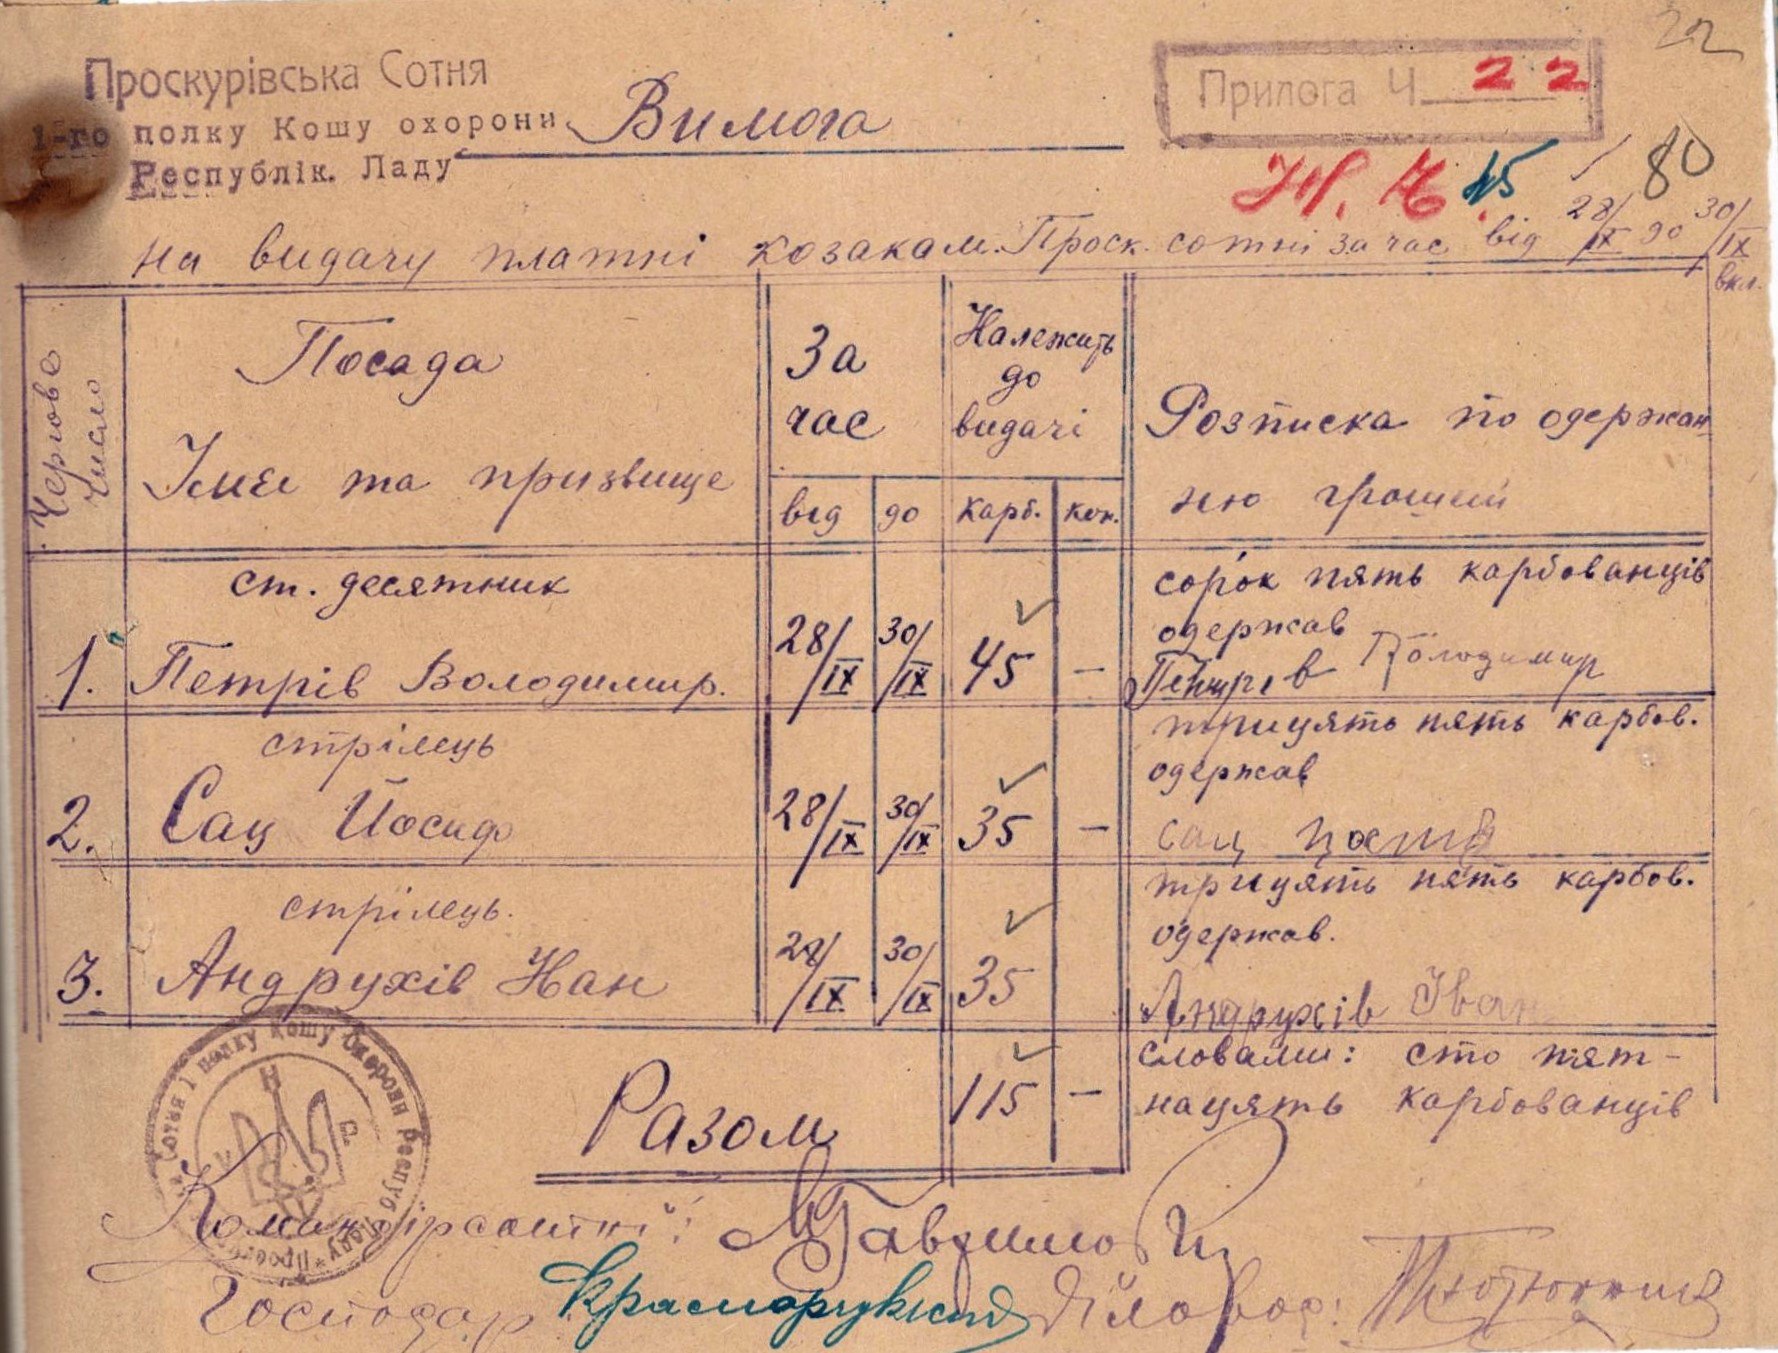 22
Проскурівська Сотня
1-го полку Кошу охорони
Республік. Ладу
Вимога
Прилога Ч. 22
Ж. Ч. 15
80
на видачу платні козакам. Проск. сотні за час від 28/IX до 30/IX вкл.
Чергове число
Посада
Імя та призвище
За час
від
до
Належить до видачі
карб.
коп.
Розписка по одержан
ню грошей
1.
ст. десятник
Петрів Володимир.
28/IX
30/IX
45
—
сорок пять карбованців
одержав
Петрів Володимир
2.
стрілець
Сац Йосиф
28/IX
30/IX
35
—
трицять пять карбов.
одержав
сац
3.
стрілець.
Андрухів Иван
28/IX
30/IX
35
трицять пять карбов.
одержав.
Андрухів Іван
Разом
115
—
словами: сто пят-
нацять карбованців
Сотня 1 полку Кошу Охорони Респуб. Ладу
Командір сотні:
Господар
Діловод: